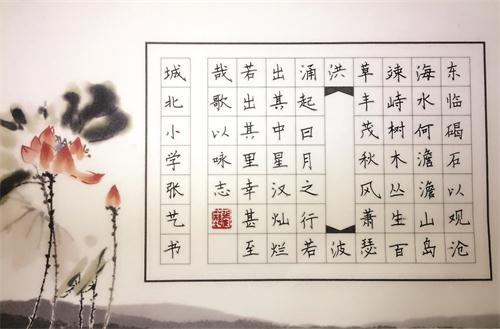 东临碣石以观沧
海水何澹澹山岛
竦峙树木丛生百
草丰茂秋风萧瑟
洪波
涌起日月之行若
出其中星汉灿烂
若出其里幸甚至
哉歌以咏志
城北小学张艺书